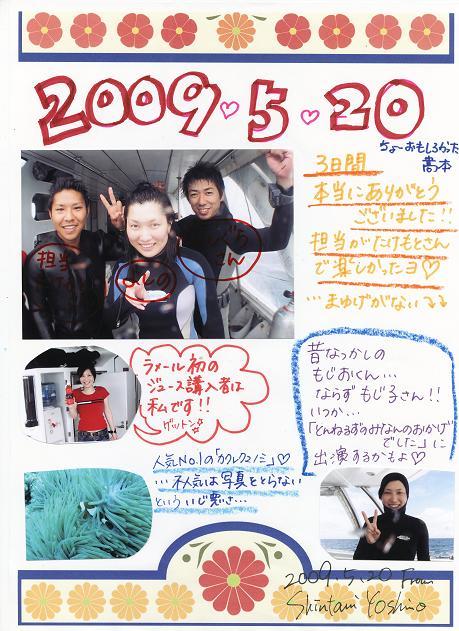 2009♡5.20
ちょ〜おもしろかった
3日間
本当にありがとう
ございました!!
担当がたけもとさん
で楽しかったヨ♡
…まゆげがない
担当
よしの
さん
ラメール初の
ジュース購入者は
私です!!
ゲットン☆
昔なつかしの
もじおくん…
ならずもじ子さん!!
いつか…
「とんねるずのみなさんのおかげ
でした」に
出演するかもよ♡
人気No.1の「カクレクマノミ」♡
…不人気は写真をとらない
といういじ悪さ…
2009.5.20 From
Shintani Yoshino